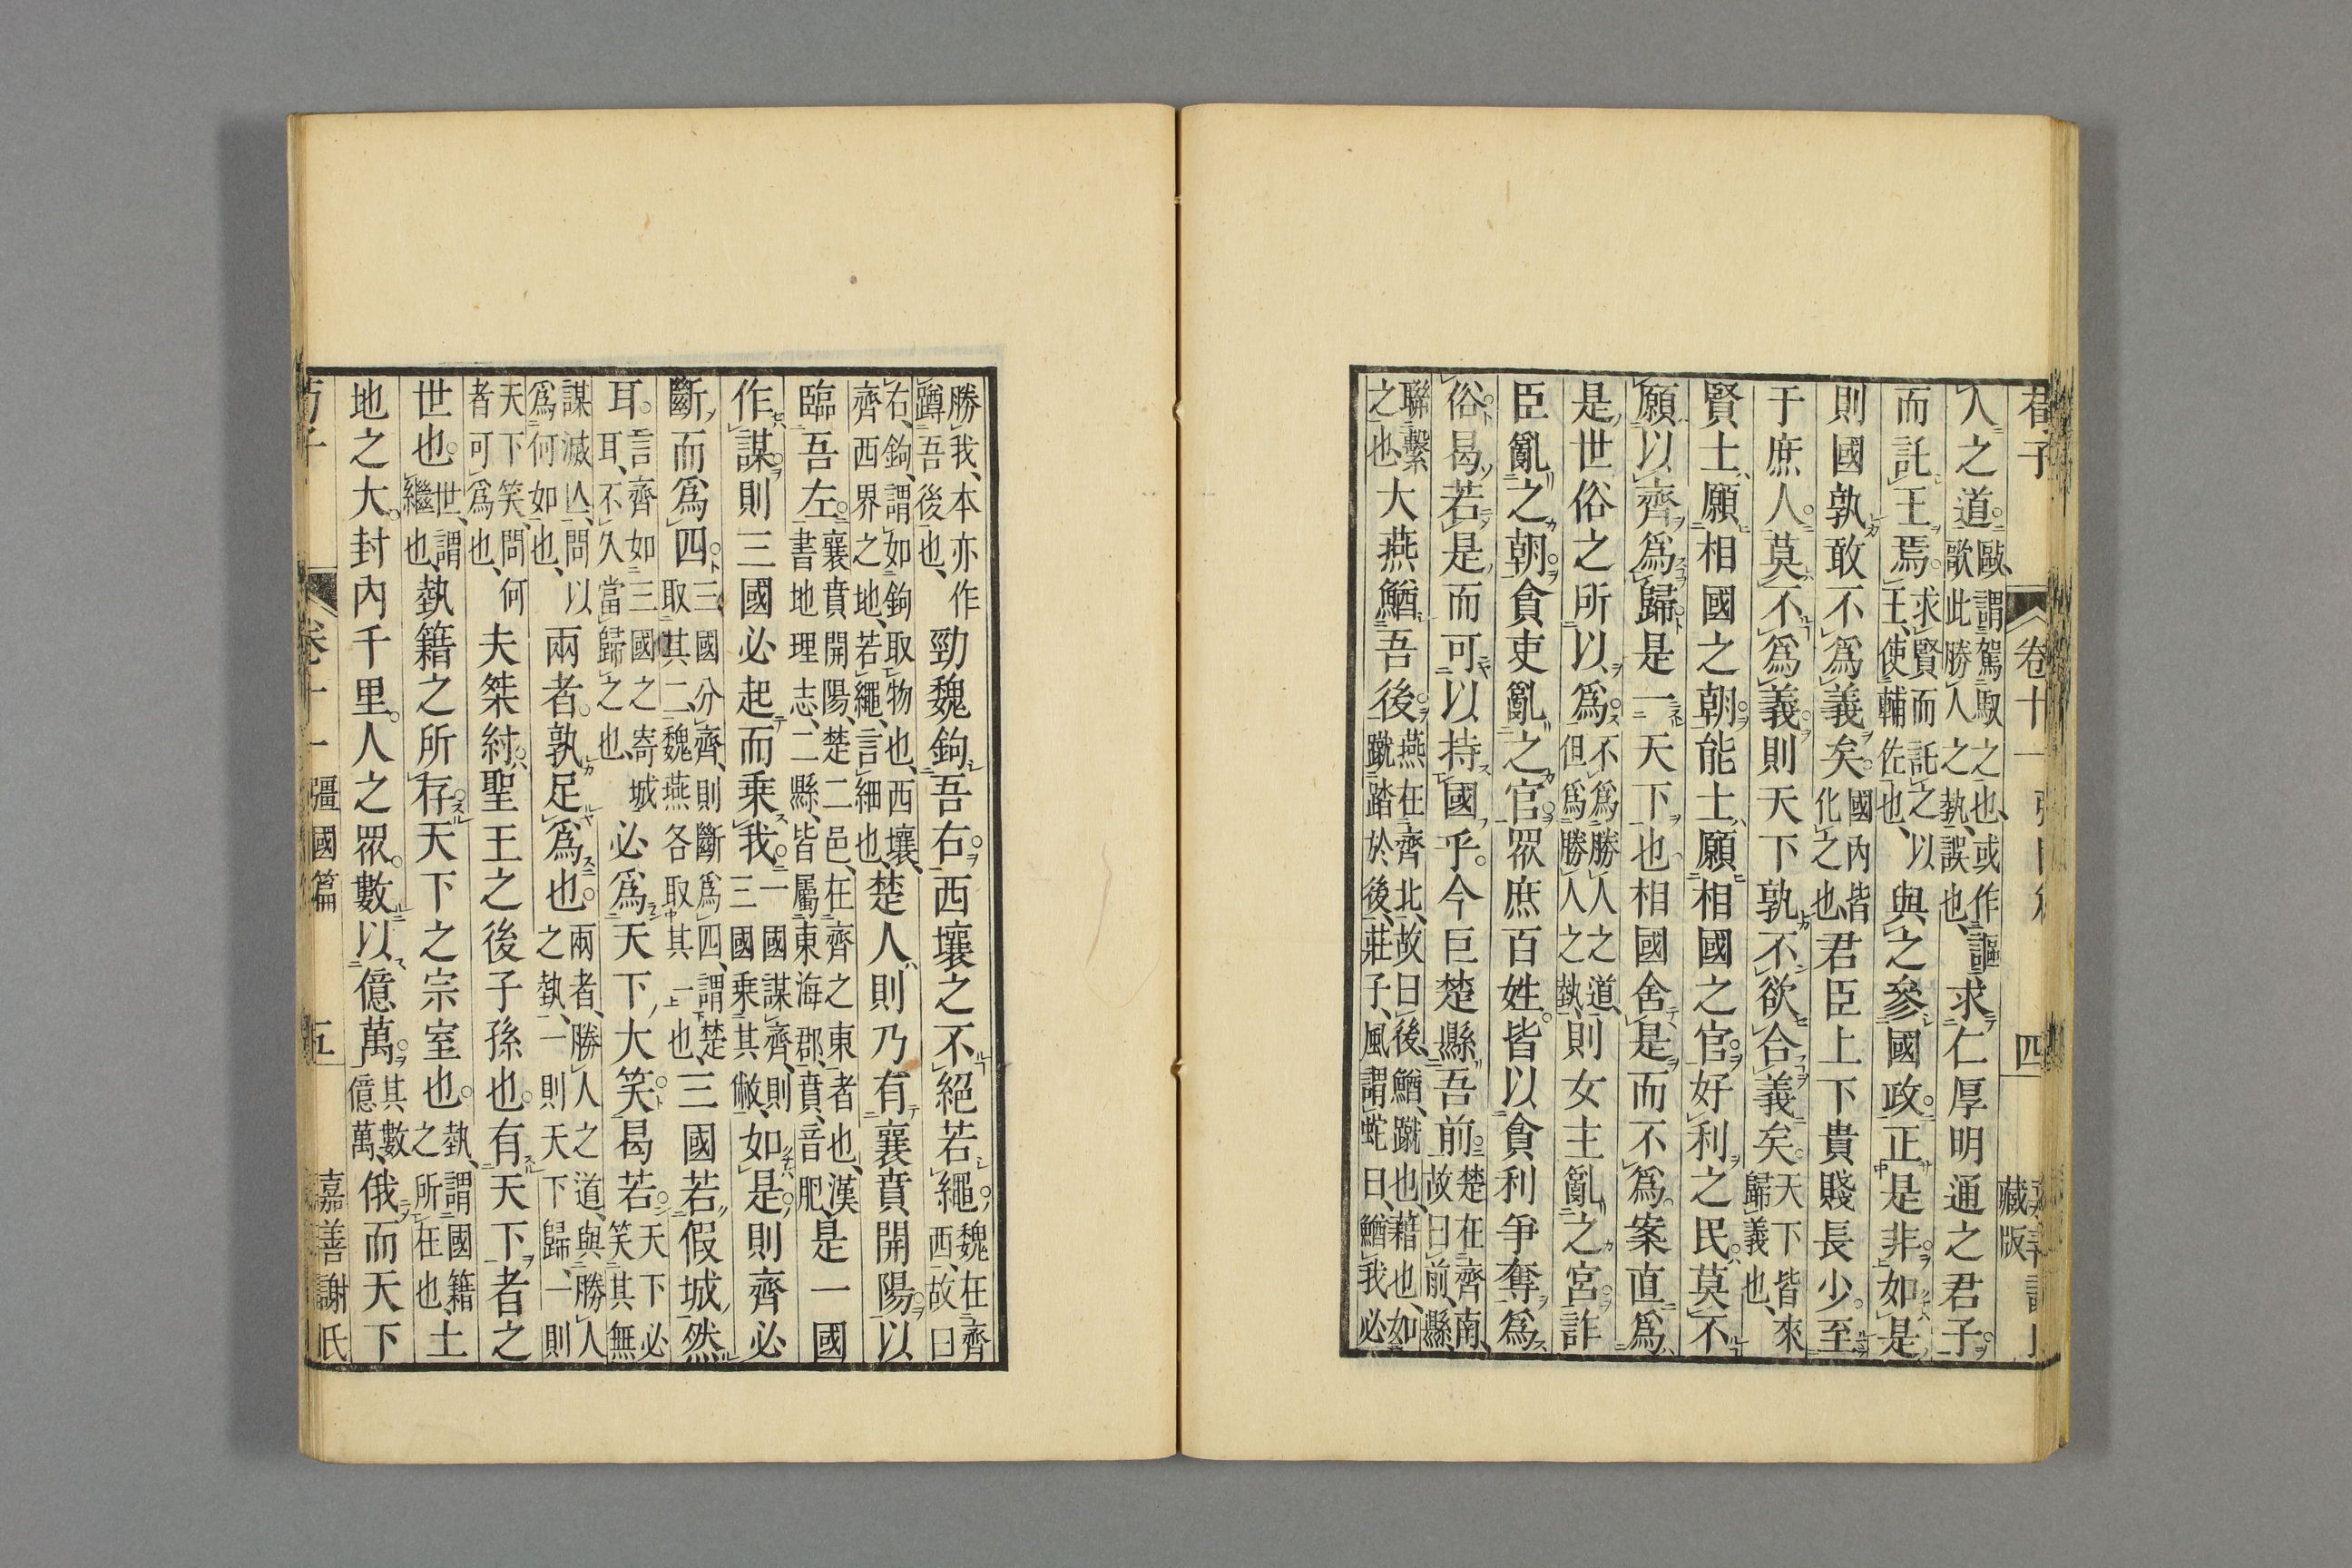 荀子 卷十一 四 藏版
人之道歐謂駕馭之也、或作謳歐此勝人之埶、誤也、求仁厚明通之君子
而託王焉求賢而託之以王、使輔佐也、與之參國政正是非如是
則國孰敢不爲義矣國內皆化之也君臣上下貴賤長少至
于庶人莫不爲義則天下孰不欲合義矣天下皆來歸義也、
賢士願相國之朝能士願相國之官好利之民莫不
願以齊爲歸是一天下也相國舍是而不爲案直爲
是世俗之所以爲不爲勝人之道、但爲勝人之埶、則女主亂之宮詐
臣亂之朝貪吏亂之官衆庶百姓皆以貪利爭奪爲
俗曷若是而可以持國乎今巨楚縣吾前楚在齊南、故曰前、縣、
聯繫之也大燕鰌吾後燕在齊北、故曰後、鰌、蹴也、藉也、如蹴踏於後、莊子、風謂蛇曰、鰌我必
勝我、本亦作蹲吾後也、勁魏鉤吾右西壤之不絕若繩魏在齊西、故曰
右、鉤、謂如鉤取物也、西壤、齊西界之地、若繩、言細也、楚人則乃有襄賁開陽以
臨吾左襄賁開陽、楚二邑、在齊之東者也、漢書地理志、二縣、皆屬東海郡、賁、音肥、是一國
作謀則三國必起而乘我一國謀齊、則三國乘其敝、如是則齊必
斷而爲四三國分齊、則斷爲四、謂楚取其二、魏燕各取其一也、三國若假城然
耳言齊如三國之寄城耳、不久當歸之也、必爲天下大笑曷若天下必笑其無
謀滅亡、問以爲何如也、兩者孰足爲也兩者、勝人之道、與勝人之埶、一則天下歸、一則
天下笑、問何者可爲也、夫桀紂聖王之後子孫也有天下者之
世也世、謂繼也、埶籍之所存天下之宗室也埶、謂國籍之所在也、土
地之大封內千里人之衆數以億萬其數億萬、俄而天下
卷十一 彊國篇 五 嘉善謝氏